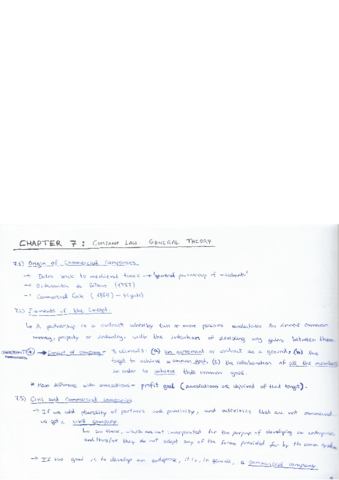 CHAPTER 7: COMPANY LAW. GENERAL THEORY
7.1) Origin of Commercial Companies
→ Dates back to medieval times → "general partnership of merchants"
→ Ordinances of Bilbao (1737)
→ Commercial Code (1829) →
7.2) Elements of the Concept
↳ A partnership is a contract whereby two or more persons to common
money, property or industry, with the intention of any gains between them
→ Concept of company → 3 elements: (a) an agreement or contract as a ground; (b) the
target to achieve a common goal, (c) the collaboration of all the members
in order to achieve that common goal.
* Main difference with associations → profit goal (associations are deprived of that target).
7.3) Civil and commercial companies
→ If we add plurality of partners and and activities that are not commercial,
we get a civil company
↳ are not incorporated for the purpose of developing an enterprise,
and therefore they do not adopt any of the forms provided for by the comm
→ If the goal is to develop an enterprise, it is, in general, a commercial company